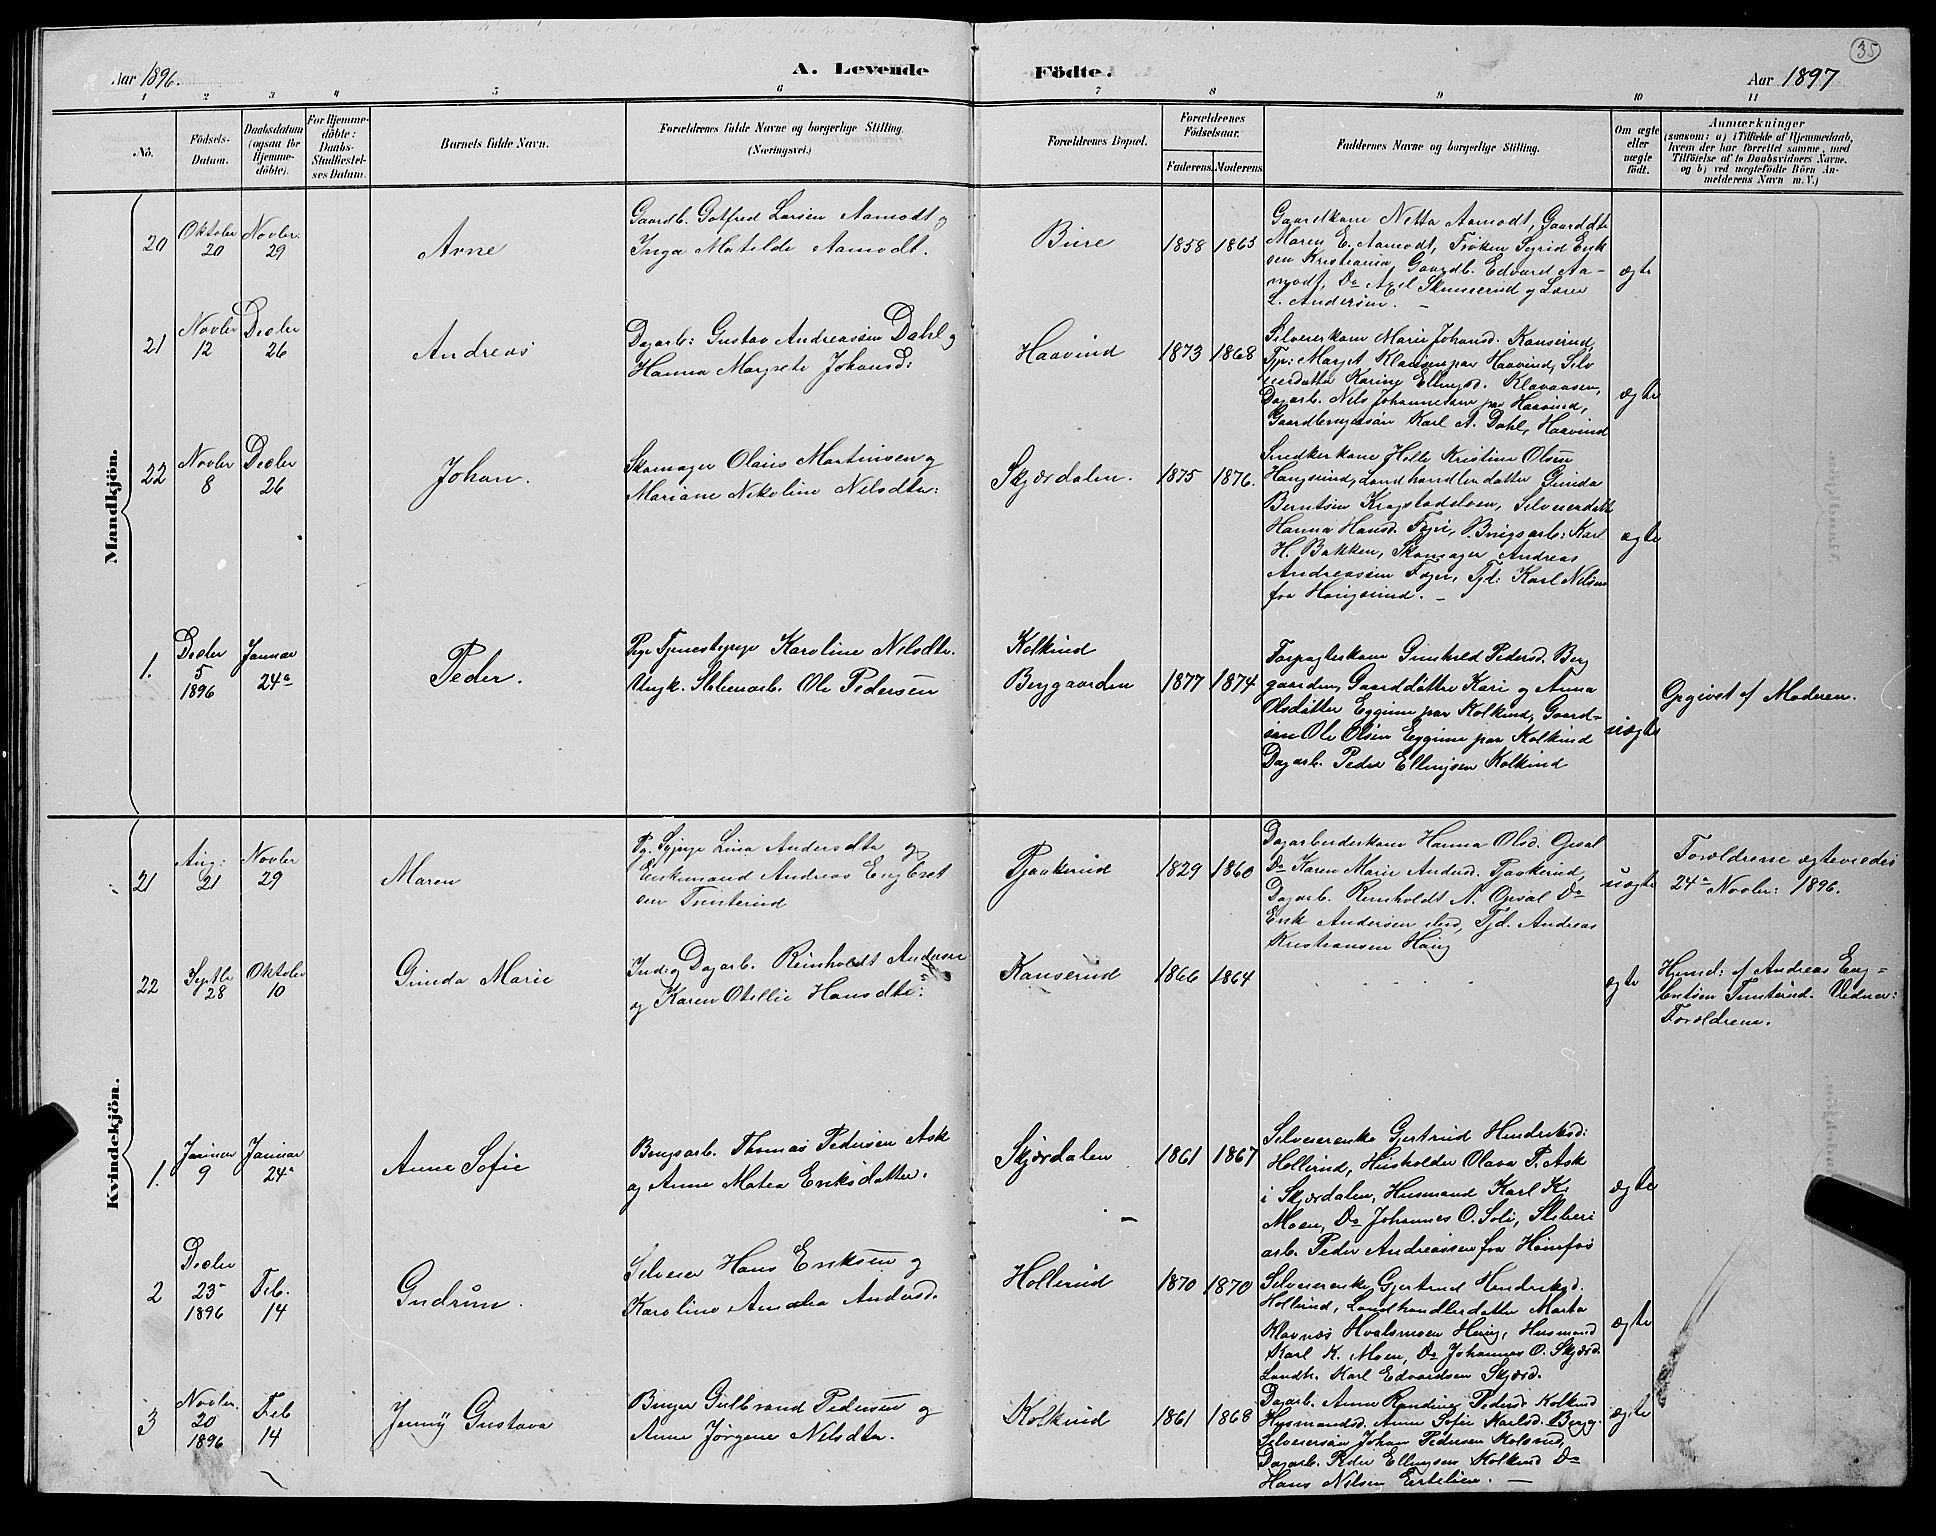 35
Aar 1896. A. Levende Födte. Aar 1897
1 2 3 4 5 6 7 8 9 10 11
No.
Födsels-
Datum.
Daabsdatum
(ogsaa for
Hjemme-
döbte).
For Hjemme-
döbte:
Daabs-
Stadfæstel-
ses Datum.
Barnets fulde Navn.
Forældrenes fulde Navne og borgerlige Stilling.
(Næringsvei.)
Forældrenes Bopæl.
Forældrenes
Födselsaar.
Faderens. Moderens.
Faddernes Navne og borgerlige Stilling.
Om ægte
eller
uægte
födt.
Anmærkninger
(saasom: a) i Tilfælde af Hjemmedaab,
hvem der har forrettet samme, med
Tilföielse af to Daabsvidners Navne,
og b) ved uægtefödte Börn An-
melderens Navn m. V.)
Mandkjön.
20
Oktober
20
Novbr.
29
Arne
Gaardb. Gotfred Larsen Aamodt og
Inga Matilde Aamodt.
Bure
1858 1863
Gaardkone Netta Aamodt, Gaarddtr
Maren E. Aamodt, Frøken Sigrid Erik
sen Kristiania, Gaardb. Edvard Aa-
modt, Do Axel Skinnerud og Lærer
L. Andersen. -
ægte
21
Novbr
12
Decbr
26
Andreas
Dagarb: Gustav Andreassen Dahl og
Hanna Margrete Johansd:
Haavind
1873 1868
Selveierkone Marie Johansd. Kanserud,
Tjp: Marget Klausen paa Haavind, Selv
eierdatter Karine Ellingsd. Klavaasen,
Dagarb. Nils Johannessen paa Haavind,
Gaardbrugersøn Karl A. Dahl, Haavind
ægte
22
Novbr
8
Decbr
26
Johan.
Skomager Olaus Martinsen og
Mariane Nikoline Nilsdtr:
Skjærdalen.
1875 1876.
Snedkerkone Helle Kristine Olsen
Haugsrud, Landhandlerdatter Gunda
Berntsen Krogstadelven, Selveierdatt
Hanna Hansd. Fjeri, Brugsarb: Karl
H. Bakken, Skomager Andreas
Andreassen Fager, Tjd: Karl Nilsen
fra Haugsrud. -
ægte
1.
Decbr
5
1896
Januar
24de
Peder.
Pige Tjenestepige Karoline Nilsdtr.
Ungk. Sliberiarb. Ole Pedersen
Kolkind
Berggaarden
1877 1874
Forpagterkone Gunhild Pedersd. Berg
gaarden, Gaarddøttre Kari og Anna
Olsdøtter Eggine paa Kolkind, Gaard-
søn Ole Olsen Eggine paa Kolkind
Dagarb. Peder Ellingsen Kolkind
uægte
Opgivet af Moderen.
Kvindekjön.
21
Aug:
21
Novbr
29
Maren
Pg. Sypige Lina Andersdtr og
Enkemand Andreas Engebret
sen Tunterud
Tjaakerud
1829 1860
Dagarbeiderkone Hanna Olsd. Opsal
Do Karen Marie Andersd. Tjaakerud,
Dagarb. Reinholdt A. Opsal Do
Erik Andersen sted, Tjd. Andreas
Kristiansen Haug
uægte
Forældrene ægteviedes
24de Novbr: 1896.
22
Septbr
28
Oktober
10
Gunda Marie
Inds og Dagarb. Reinholdt Andersen
og Karen Otellie Hansdtr:
Kanserud
1866 1864
ægte
Hjemd: af Andreas Eng-
bretsen Tunterud. Vidner:
Forældrene.
1.
Januar
9
Januar
24de
Anne Sofie
Brugsarb. Thomas Pedersen Ask
og Anne Matea Eriksdatter.
Skjærdalen
1861 1867
Selveierenke Gjertrud Hendriksd:
Hollerud, Husholder Olava P. Ask
i Skjærdalen, Husmand Karl K.
Moen, Do Johannes O. Soli, Sliberi
arb. Peder Andreassen fra Hønefos
ægte
2
Decbr
23de
1896
Feb.
14
Gudrun.
Selveier Hans Eriksen og
Karoline Amalia Andersd.
Hollerud
1870 1870
Selveierenke Gjertrud Hendriksd.
Hollerud, Landhandlerdatter Marta
Klavnæs Hvalsmoen Haug, Husmand
Karl K. Moen, Do Johannes O. Skjærd.
Landh. Karl Edvardsen Skjærd.
ægte
3
Novbr.
20
1896
Feb
14
Jenny Gustava
Bruger Gulbrand Pedersen og
Anne Jørgene Nilsdtr.
Kolkind
1861 1868
Dagarb. Anne Randine Pedersd. Kolkind
Husmandsd. Anne Sofie Karlsd. Berg.
Selveiersøn Johan Pedersen Kolsrud,
Dagarb. Peder Ellingsen Kolkind Do
Hans Nilsen Eertelien. -
ægte